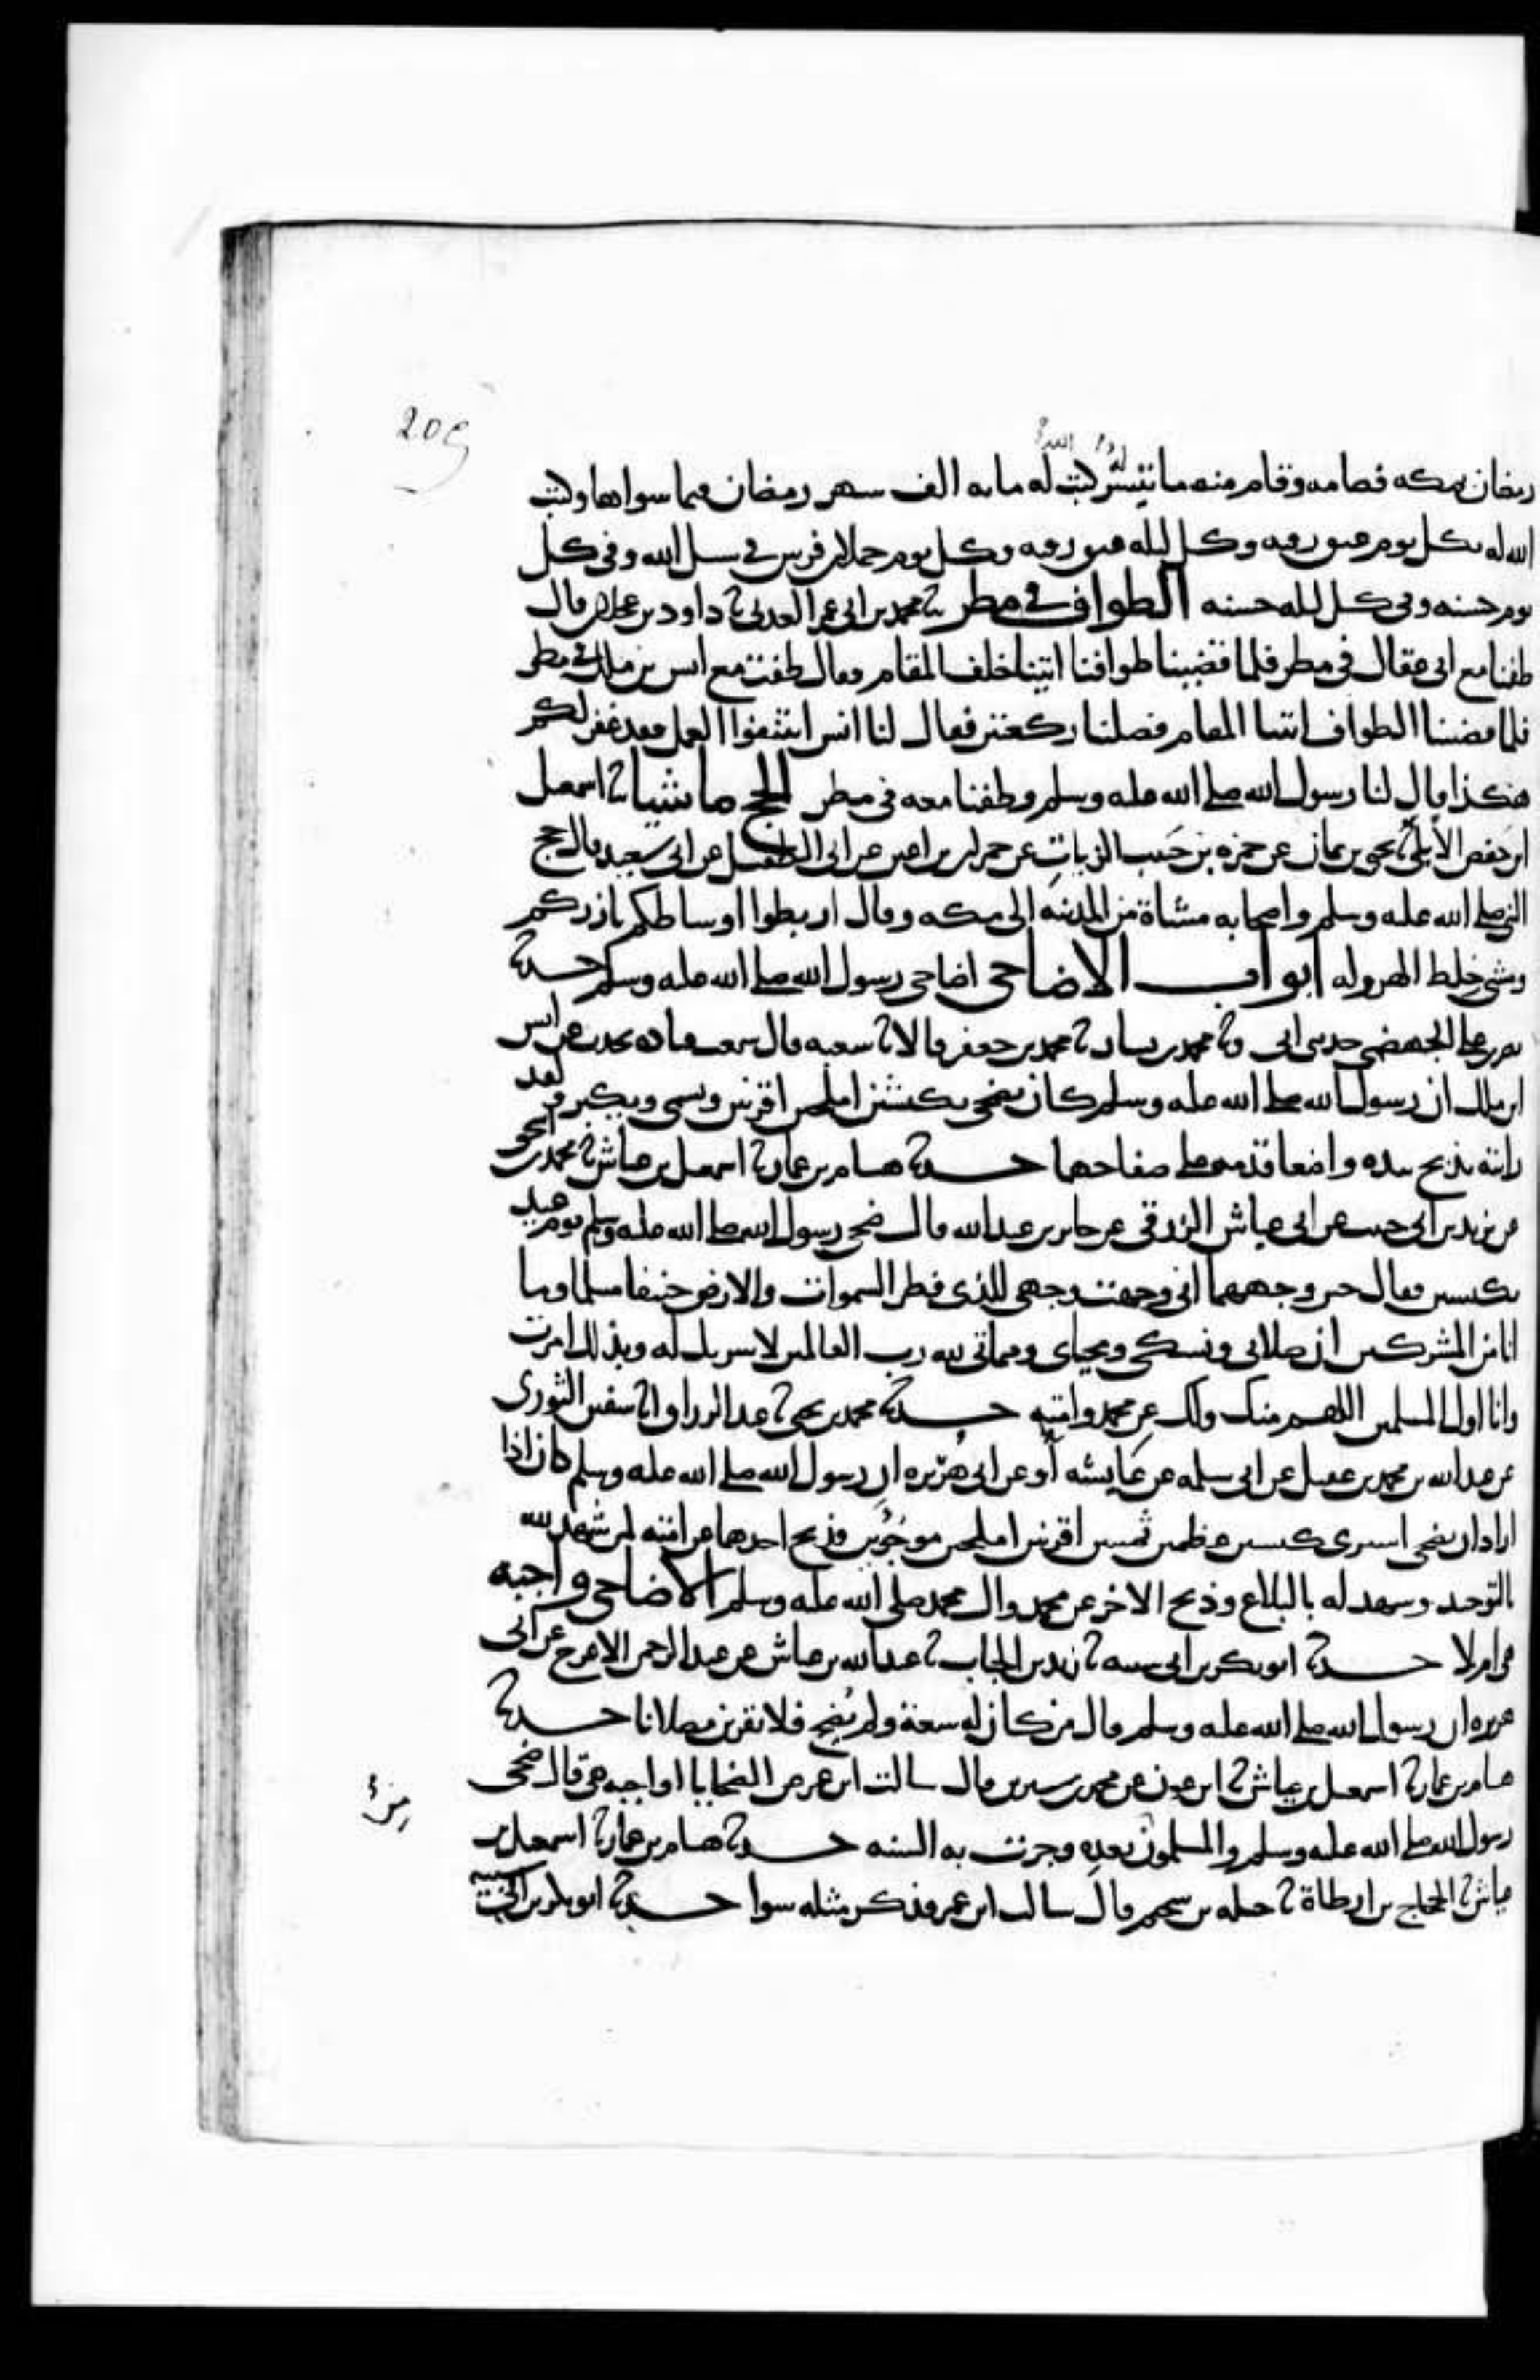 209
رمضان بمكه فصامه وقام منه ما تيسر له كتب الله له مايه الف شهر رمضان فيما سواها وكتب
الله له بكل يوم عتق رقبه وكل ليله عتق رقبه وكل يوم حملان فرس في سبيل الله وفي كل
يوم حسنه وفي كل ليله حسنه الطواف في مطر ثنا محمد بن ابي عمر العدني ثنا داود بن عجلان قال
طفنا مع ابي عقال في مطر فلما قضينا طوافنا اتينا خلف المقام فقال طفت مع انس بن ملك في مطر
فلما قضينا الطواف اتينا المقام فصلينا ركعتين فقال لنا انس ايتنفوا العمل فقد غفر لكم
هكذا قال لنا رسول الله صلى الله عليه وسلم وطفنا معه في مطر الحج ماشيا ثنا اسمعيل
ابن حفص الأبلي ثنا يحيى بن يمان عن حمزه بن حبيب الزيات عن حمران بن اعين عن ابي الطفيل عن ابي سعيد قال حج
النبي صلى الله عليه وسلم واصحابه مشاة من المدينه الى مكه وقال اربطوا اوساطكم بازركم
ومشى خلط الهروله ابواب الاضاحي اضاحي رسول الله صلى الله عليه وسلم حدثنا
نصر بن علي الجهضمي حدثني ابي وثنا محمد بن بشار ثنا محمد بن جعفر قالا ثنا شعبه قال سمعت قتاده يحدث عن انس
ابن ملك ان رسول الله صلى الله عليه وسلم كان يضحي بكبشين املحين اقرنين ويسمي ويكبر ولقد
رايته يذبح بيده واضعا قدمه على صفاحهما حدثنا هشام بن عمار ثنا اسمعيل بن عياش ثنا محمد بن اسحق
عن يزيد بن ابي حبيب عن ابي عياش الزرقي عن جابر بن عبد الله قال ضحى رسول الله صلى الله عليه وسلم يوم عيد
بكبشين فقال حين وجههما اني وجهت وجهي للذي فطر السموات والارض حنيفا مسلما وما
انا من المشركين ان صلاتي ونسكي ومحياي ومماتي لله رب العالمين لا شريك له وبذلك امرت
وانا اول المسلمين اللهم منك ولك عن محمد وامته حدثنا محمد بن يحيى ثنا عبد الرزاق انا سفين الثوري
عن عبد الله بن محمد بن عقيل عن ابي سلمه عن عايشه أو عن ابي هريره ان رسول الله صلى الله عليه وسلم كان اذا
اراد ان يضحي اشترى كبشين عظيمين ثمينين اقرنين املحين موجوين فذبح احدهما عن امته لمن شهد لله
بالتوحيد وشهد له بالبلاغ وذبح الاخر عن محمد وال محمد صلى الله عليه وسلم الاضاحي واجبه
هي ام لا حدثنا ابو بكر بن ابي شيبه ثنا زيد بن الحباب ثنا عبد الله بن عياش عن عبد الرحمن الاعرج عن ابي
هريره ان رسول الله صلى الله عليه وسلم قال من كان له سعة ولم يضح فلا يقربن مصلانا حدثنا
هشام بن عمار ثنا اسمعيل بن عياش ثنا ابن عون عن محمد بن سيرين قال سالت ابن عمر عن الضحايا اواجبه هي قال ضحى
رسول الله صلى الله عليه وسلم والمسلمون بعده وجرت به السنه حدثنا هشام بن عمار ثنا اسمعيل بن
عياش ثنا الحجاج بن ارطاة ثنا جبله بن سحيم قال سالت ابن عمر فذكر مثله سوا حدثنا ابو بكر بن ابي شيبه